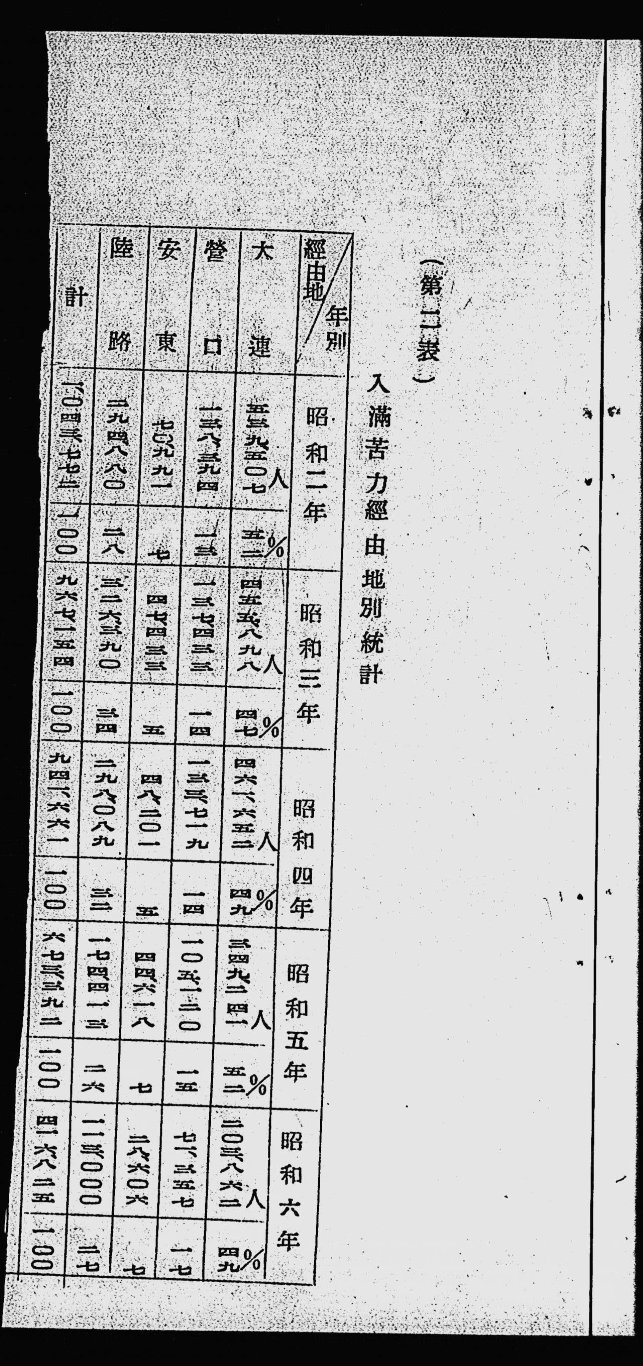 (第二表)
入滿苦力經由地別統計
經由地 年別 昭和二年 昭和三年 昭和四年 昭和五年 昭和六年
人 % 人 % 人 % 人 % 人 %
大連 五三九、五〇七 五二 四五五、八九八 四七 四六一、六五二 四九 三四九、二四一 五二 二〇三、八六二 四九
營口 一三八、三九四 一三 一三七、四三三 一四 一三三、七一九 一四 一〇五、一二〇 一五 七一、三五七 一七
安東 七〇、九九一 七 四七、四三三 五 四八、二〇一 五 四四、六一八 七 二八、六〇六 七
陸路 二九四、八八〇 二八 三二六、三九〇 三四 二九八、〇八九 三二 一七四、四一三 二六 一一三、〇〇〇 二七
計 一、〇四三、七七二 一〇〇 九六七、一五四 一〇〇 九四一、六六一 一〇〇 六七三、三九二 一〇〇 四一六、八二五 一〇〇